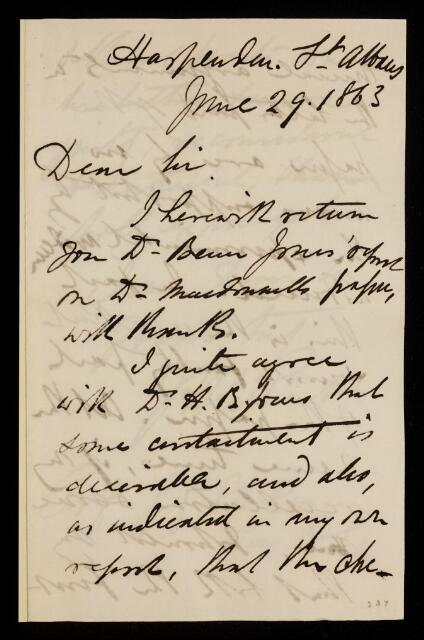 Harpenden. St. Albans
June 29. 1863
Dear Sir.
I herewith return
you Dr Bence Jones' report
on Dr Macdonnell's paper,
with thanks.
I quite agree
with Dr H. B. Jones that
some curtailment is
desirable, and also,
as indicated in my own
report, that the che-
237